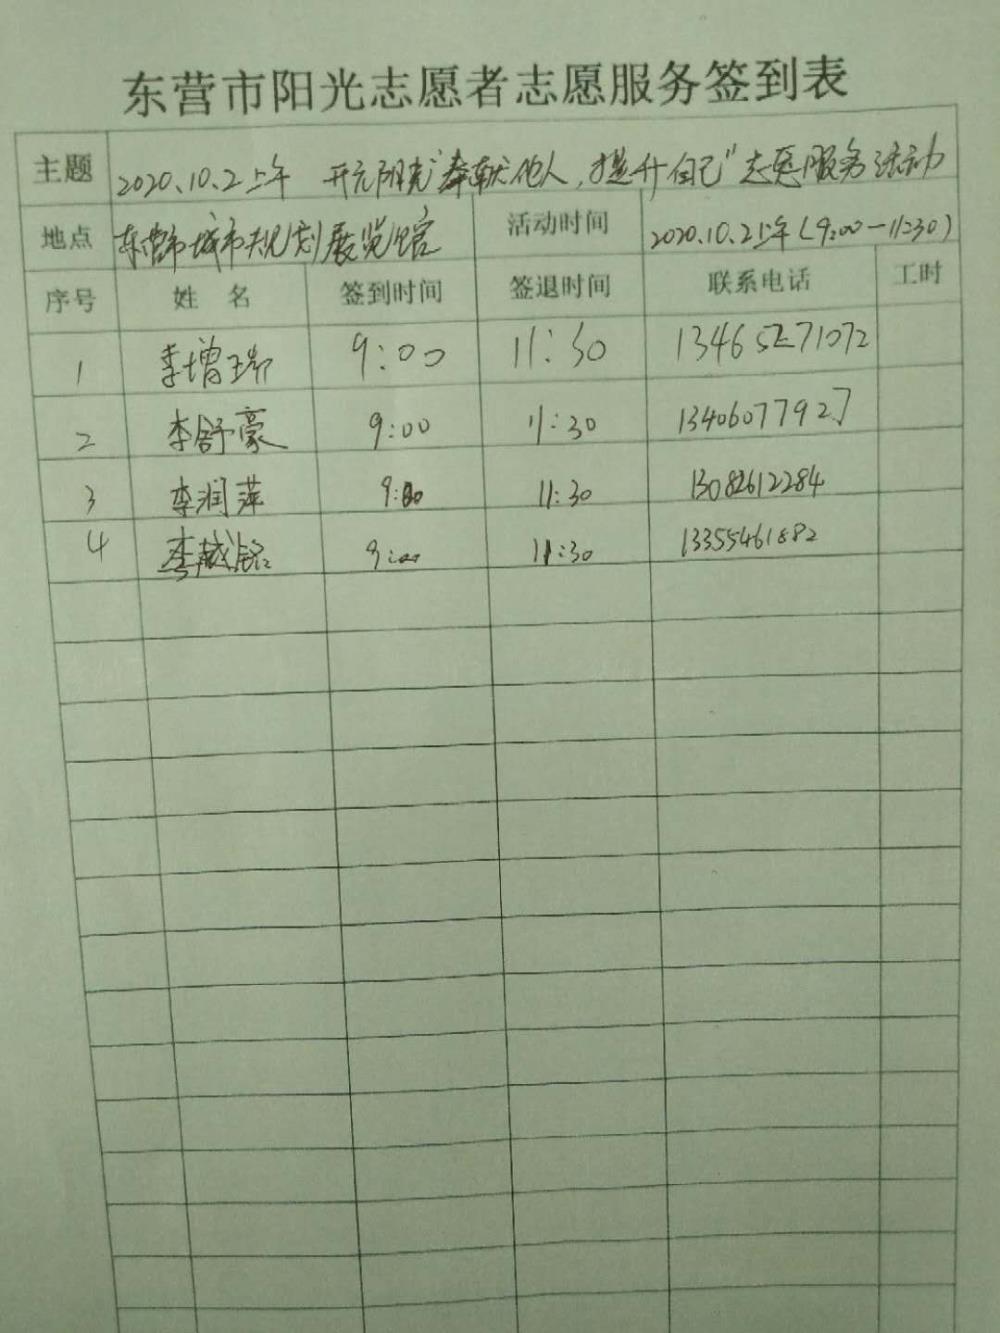 东营市阳光志愿者志愿服务签到表
主题 2020.10.2上午 开元阳光"奉献他人,提升自己"志愿服务活动
地点 东营市城市规划展览馆 活动时间 2020.10.2上午(9:00-11:30)
序号 姓名 签到时间 签退时间 联系电话 工时
1 李增瑞 9:00 11:30 13465271072
2 李舒豪 9:00 11:30 13406077927
3 李润萍 9:00 11:30 13082612284
4 李越铭 9:00 11:30 13355461882